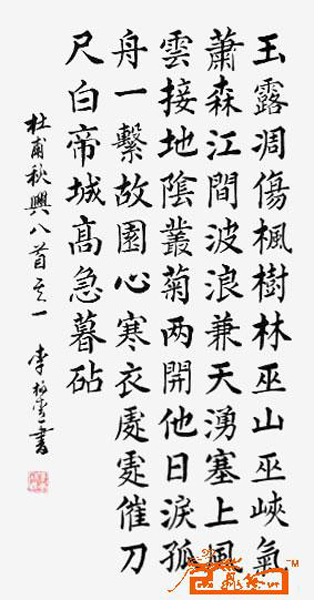 玉露凋傷楓樹林巫山巫峽氣
蕭森江間波浪兼天湧塞上風
雲接地陰叢菊两開他日淚孤
舟一繫故園心寒衣處處催刀
尺白帝城髙急暮砧
杜甫秋興八首其一 李書